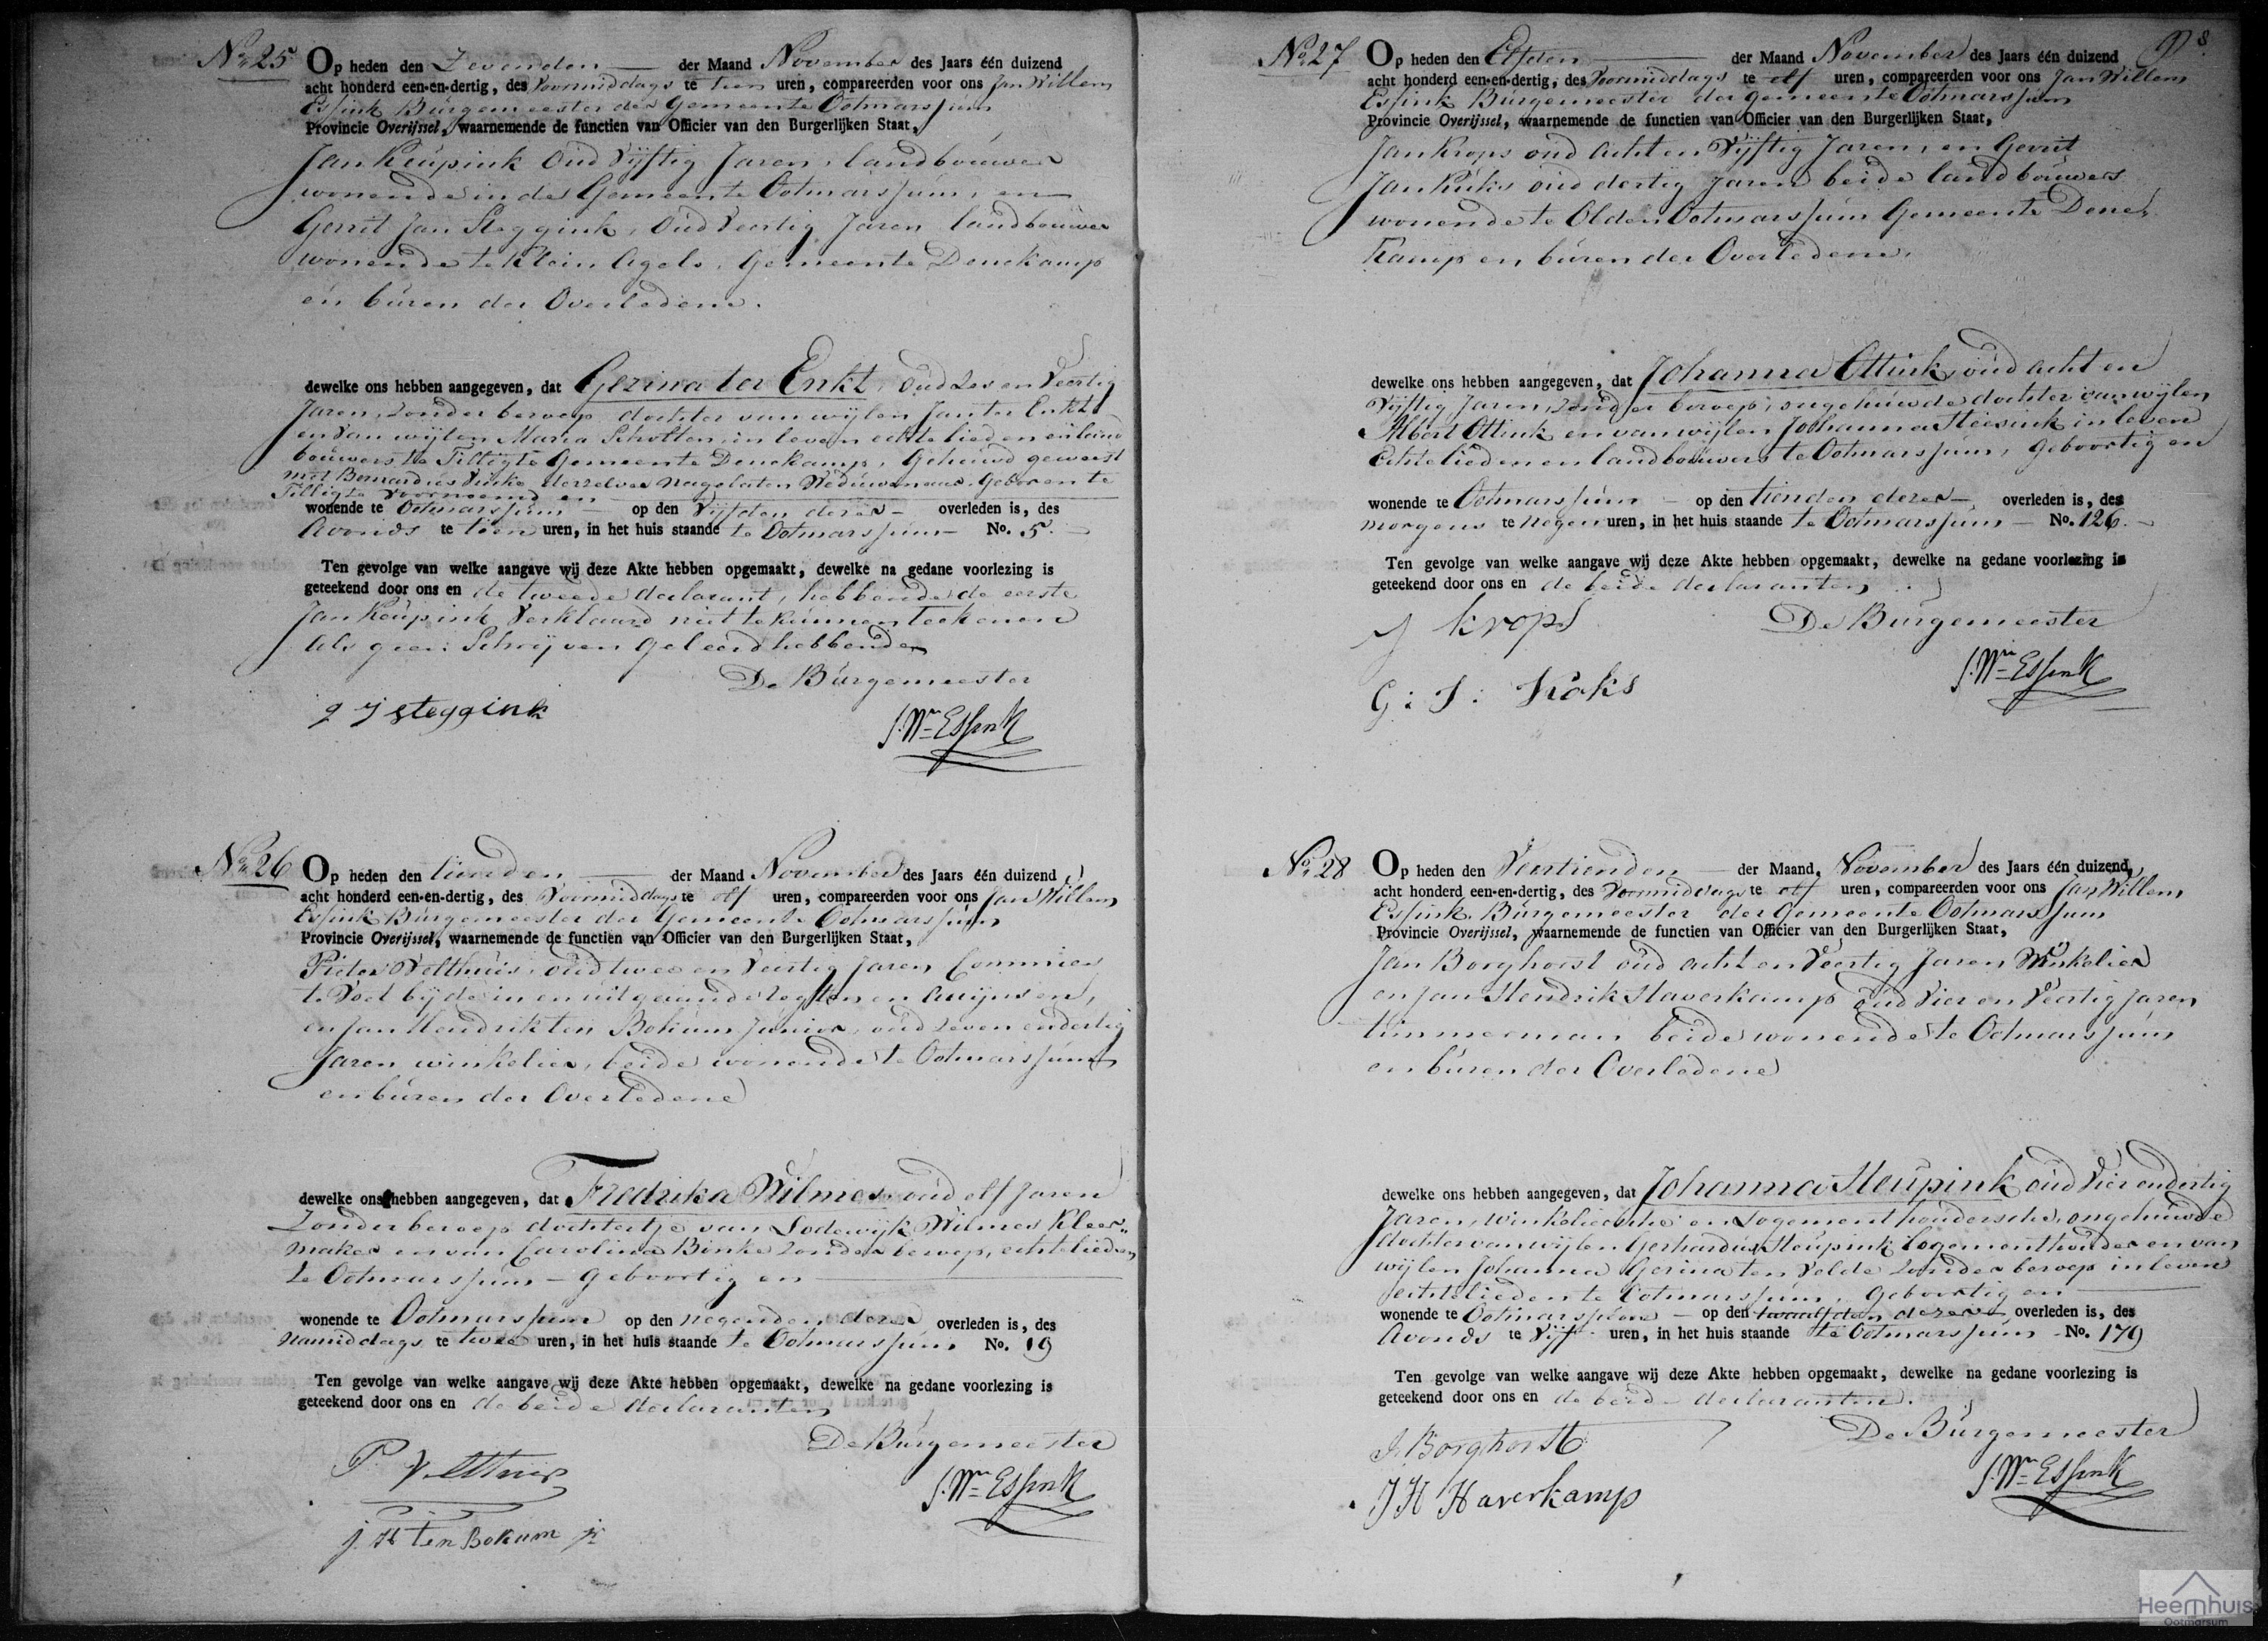 No. 25 Op heden den Zevenden der Maand November des Jaars één duizend
acht honderd een-en-dertig, des Voormiddags te tien uren, compareerden voor ons Jan Willem
Essink Burgemeester der Gemeente Ootmarssum
Provincie Overijssel, waarnemende de functien van Officier van den Burgerlijken Staat,
Jan Keupink oud Vijftig Jaren, landbouwer
wonende in de Gemeente Ootmarssum, en
Gerrit Jan Steggink, Oud Veertig Jaren landbouwer
wonende te Klein Agelo, Gemeente Denekamp
en buren der Overledene.
dewelke ons hebben aangegeven, dat Gezina ter Enkt, Oud Zes en Veertig
Jaren, zonder beroep dochter van wijlen Jan ter Enkt
en van wijlen Maria Scholten in leven echtelieden en land
bouwers te Tilligte Gemeente Denekamp, Gehuwd geweest
met Bernardus derzelver nagelaten Weduwenaar. Geboren te
Tilligte voornoemd en
wonende te Ootmarssum op den Vijfden dezer overleden is, des
Avonds te tien uren, in het huis staande te Ootmarssum No. 5.
Ten gevolge van welke aangave wij deze Akte hebben opgemaakt, dewelke na gedane voorlezing is
geteekend door ons en de tweede declarant, hebbende de eerste
Jan Keupink Verklaard niet te kunnen teekenen
als geen Schrijven geleerd hebbende
De Burgemeester
g j steggink
J. Wm Essink
No. 26 Op heden den tienden der Maand November des Jaars één duizend
acht honderd een-en-dertig, des Voormiddags te elf uren, compareerden voor ons Jan Willem
Essink Burgemeester der Gemeente Ootmarssum
Provincie Overijssel, waarnemende de functien van Officier van den Burgerlijken Staat,
Pieter Velthuis, oud twee en Veertig Jaren Commies
te Voet bij de in en uitgaande regten en accijnsen,
en Jan Hendrik ten Bokum Junior, oud zeven en dertig
Jaren winkelier, beide wonende te Ootmarssum
en buren der Overledene
dewelke ons hebben aangegeven, dat Fredrika Wilmes oud elf Jaren
Zonder beroep dochtertje van Lodewijk Wilmes Kleer-
maker en van Carolina Binke zonder beroep, echtelieden
te Ootmarssum - geboortig en
wonende te Ootmarssum op den negenden dezer overleden is, des
namiddags te twee uren, in het huis staande te Ootmarssum No. 19
Ten gevolge van welke aangave wij deze Akte hebben opgemaakt, dewelke na gedane voorlezing is
geteekend door ons en de beide declaranten
De Burgemeester
P. Velthuis
J. Wm Essink
j. H ten Bokum jr
No. 27 Op heden den Elfden der Maand November des Jaars één duizend
acht honderd een-en-dertig, des Voormiddags te elf uren, compareerden voor ons Jan Willem
Essink Burgemeester der gemeente Ootmarssum
Provincie Overijssel, waarnemende de functien van Officier van den Burgerlijken Staat,
Jan Krops oud acht en Vijftig Jaren, en Gerrit
Jan Kuks oud dertig Jaren beide landbouwers
wonende te Olden Ootmarssum Gemeente Dene-
kamp en buren der Overledene.
dewelke ons hebben aangegeven, dat Johanna Ottink, oud acht en
Vijftig Jaren, zonder beroep, ongehuwde dochter van wijlen
Albert Ottink en van wijlen Johanna in leven
Echtelieden en landbouwers te Ootmarssum, geboortig en
wonende te Ootmarssum op den tienden dezer overleden is, des
morgens te negen uren, in het huis staande te Ootmarssum No. 126.
Ten gevolge van welke aangave wij deze Akte hebben opgemaakt, dewelke na gedane voorlezing is
geteekend door ons en de beide declaranten
J Krops
De Burgemeester
J. Wm Essink
G: J: Kuks
No. 28 Op heden den Veertienden der Maand November des Jaars één duizend
acht honderd een-en-dertig, des Voormiddags te elf uren, compareerden voor ons Jan Willem
Essink Burgemeester der Gemeente Ootmarssum
Provincie Overijssel, waarnemende de functien van Officier van den Burgerlijken Staat,
Jan Borghorst oud acht en Veertig Jaren Winkelier
en Jan Hendrik Haverkamp oud Vier en Veertig Jaren
timmerman beide wonende te Ootmarssum
en buren der Overledene
dewelke ons hebben aangegeven, dat Johanna Heupink oud Vier en dertig
Jaren, winkeliersche en Logementhoudersche, ongehuwde
dochter van wijlen Gerhardus Heupink logementhouder en van
wijlen Johanna Gerina ten Velde zonder beroep in leven
echtelieden te Ootmarssum, geboortig en
wonende te Ootmarssum op den twaalfden dezer overleden is, des
Avonds te Vijf uren, in het huis staande te Ootmarssum No. 179
Ten gevolge van welke aangave wij deze Akte hebben opgemaakt, dewelke na gedane voorlezing is
geteekend door ons en de beide declaranten.
De Burgemeester
J. Borghorst
J. Wm Essink
JH Haverkamp
Heemhuis
Ootmarsum